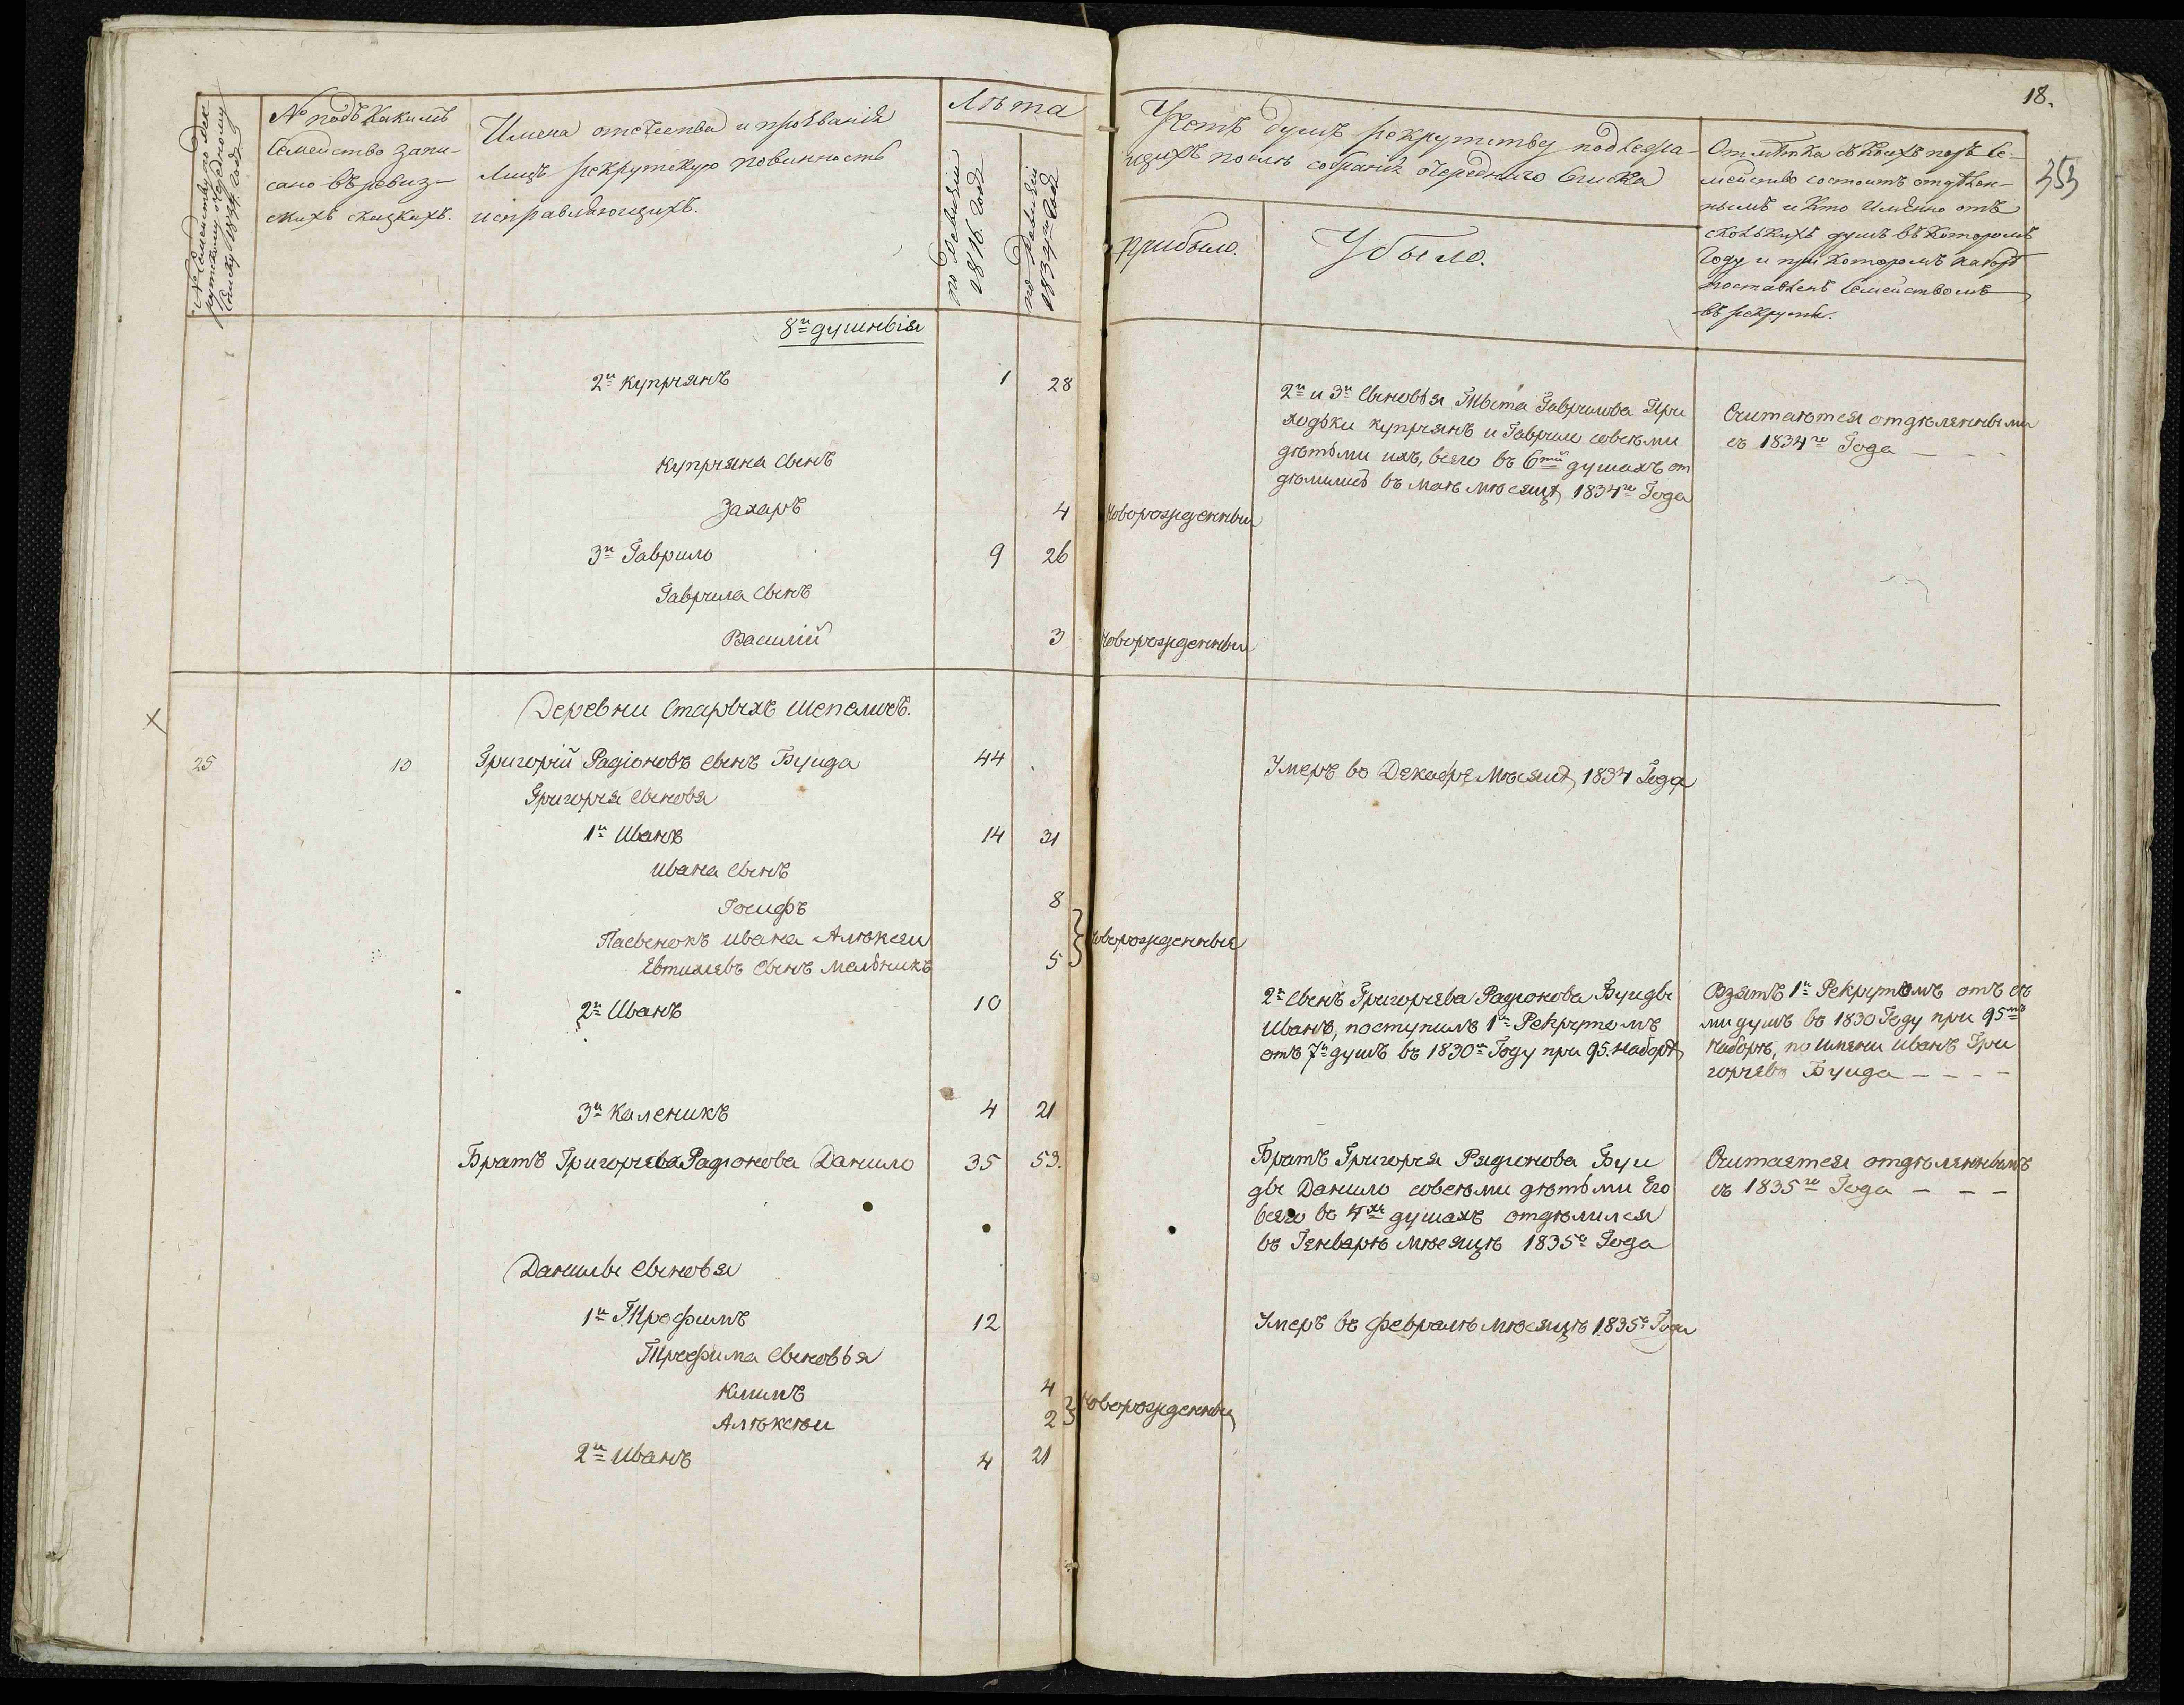 № Семейству по рек
рутскому очередному
списку 1834 года
№ подъ какимъ
семейство запи-
сано въ ревиз-
скихъ сказкахъ.
Имена отечества и прозванія
лицъ рекрутскую повинность
исправляющихъ.
Лѣта
по ревизіи
1816. года
по ревизіи
1834го года
Учетъ душъ рекрутству подлежа-
щихъ послѣ собранія очереднаго списка
прибыло.
Убыло.
Отмѣтка съ коихъ поръ се-
мейство состоитъ отдѣлен-
нымъ и кто имянно отъ
сколькихъ душъ въ которомъ
году и при которомъ наборѣ
поставленъ семействомъ
въ рекруты.
18.
353
8и душныя
2й Купріянъ 1 28
2й и 3й сыновья Тита Гаврилова При
ходьки Купріянъ и Гаврило совсѣми
дѣтьми ихъ, всего въ 6ти душахъ от
дѣлились въ маѣ мѣсяцѣ 1834го Года
Считаются отдѣленными
съ 1834го Года — — —
Купріяна сынъ
Захаръ 4 Новорожденный
3й Гаврило 9 26
Гаврила сынъ
Василій 3 Новорожденный
Деревни Старыхъ Шепеличъ.
25 13 Григорій Радіоновъ сынъ Бунда 44 Умеръ въ Декабрѣ мѣсяцѣ 1834 Года
Григорія сыновья
1й Иванъ 14 31
Ивана сынъ
Іосифъ 8
Пасынокъ Ивана Алѣксѣи
Евтихіевъ сынъ Мельникъ 5
Новорожденныя
2й Иванъ 10
2й сынъ Григоріева Радіонова Бунды
Иванъ, поступилъ 1мъ Рекрутомъ
отъ 7и душъ въ 1830мъ Году при 95. наборѣ
Взятъ 1й Рекрутомъ отъ се
ми душъ въ 1830 Году при 95мъ
наборѣ, по имяни Иванъ Гри
горіевъ Бунда — — — —
3й Каленикъ 4 21
Братъ Григоріева Радіонова Данило 35 53.
Братъ Григорія Радіонова Бун
ды Данило совсѣми дѣтьми Его
всего въ 4хъ душахъ отдѣлился
въ Генварѣ мѣсяцѣ 1835го Года
Считается отдѣленнымъ
съ 1835го Года — — —
Данилы сыновья
1й Трофимъ 12 Умеръ въ Февралѣ мѣсяцѣ 1835го Года
Трофима сыновья
Климъ 4
Алѣксѣи 2
Новорожденны
2й Иванъ 4 21